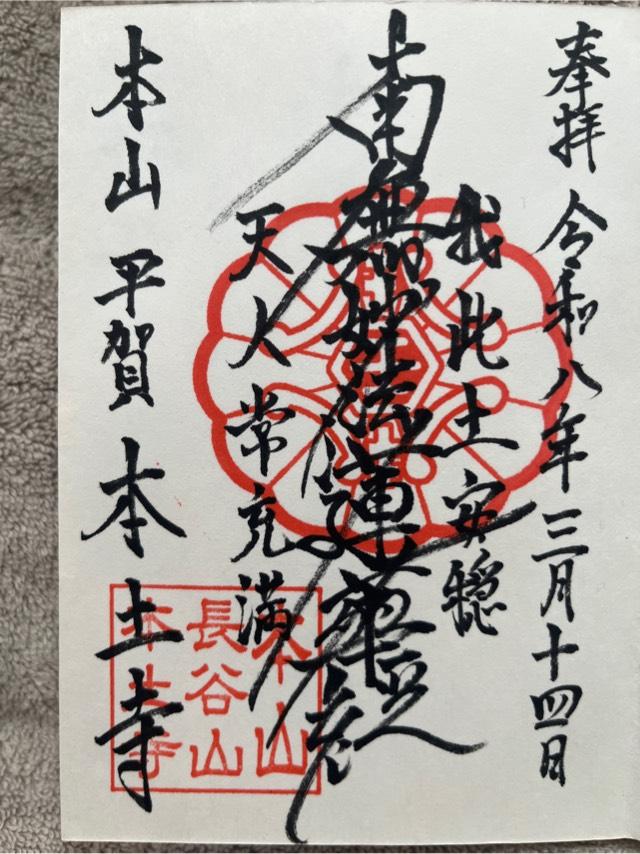 奉拝 令和八年三月十四日
我此土安穏
南無妙法蓮華経
天人常充満
本山 平賀 本土寺
本山
長谷山
本土寺